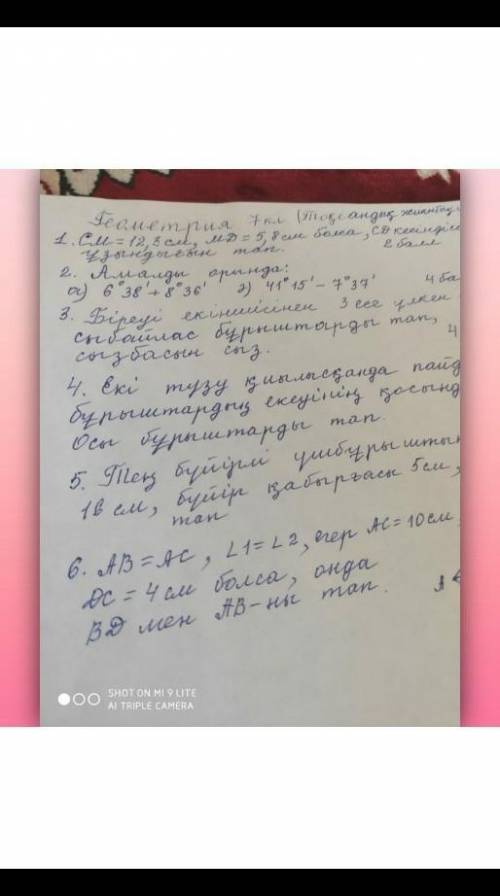 Геометрия 7 кл (Тоқсандық
1. СМ = 12,3 см, МД = 5,8 см болса, СД
ұзындығын тап. 2 балл
2. Амалды орында:
а) 6°38' + 8°36' 2) 41°15' - 7°37' 4 ба
3. Біреуі екіншісінен 3 есе үлкен
сыбайлас бұрыштарды тап, 4
сызбасын сыз.
4. Екі түзу қиылысқанда пайд
бұрыштардың екеуінің қосынд
Осы бұрыштарды тап.
5. Тең бүйірлі үшбұрыштың
16 см, бүйір қабырғасы 5 см,
тап
6. АВ = АС, ∠1 = ∠2, егер АС = 10 см,
DC = 4 см болса, онда
ВД мен АВ-ны тап.
SHOT ON MI 9 LITE
AI TRIPLE CAMERA